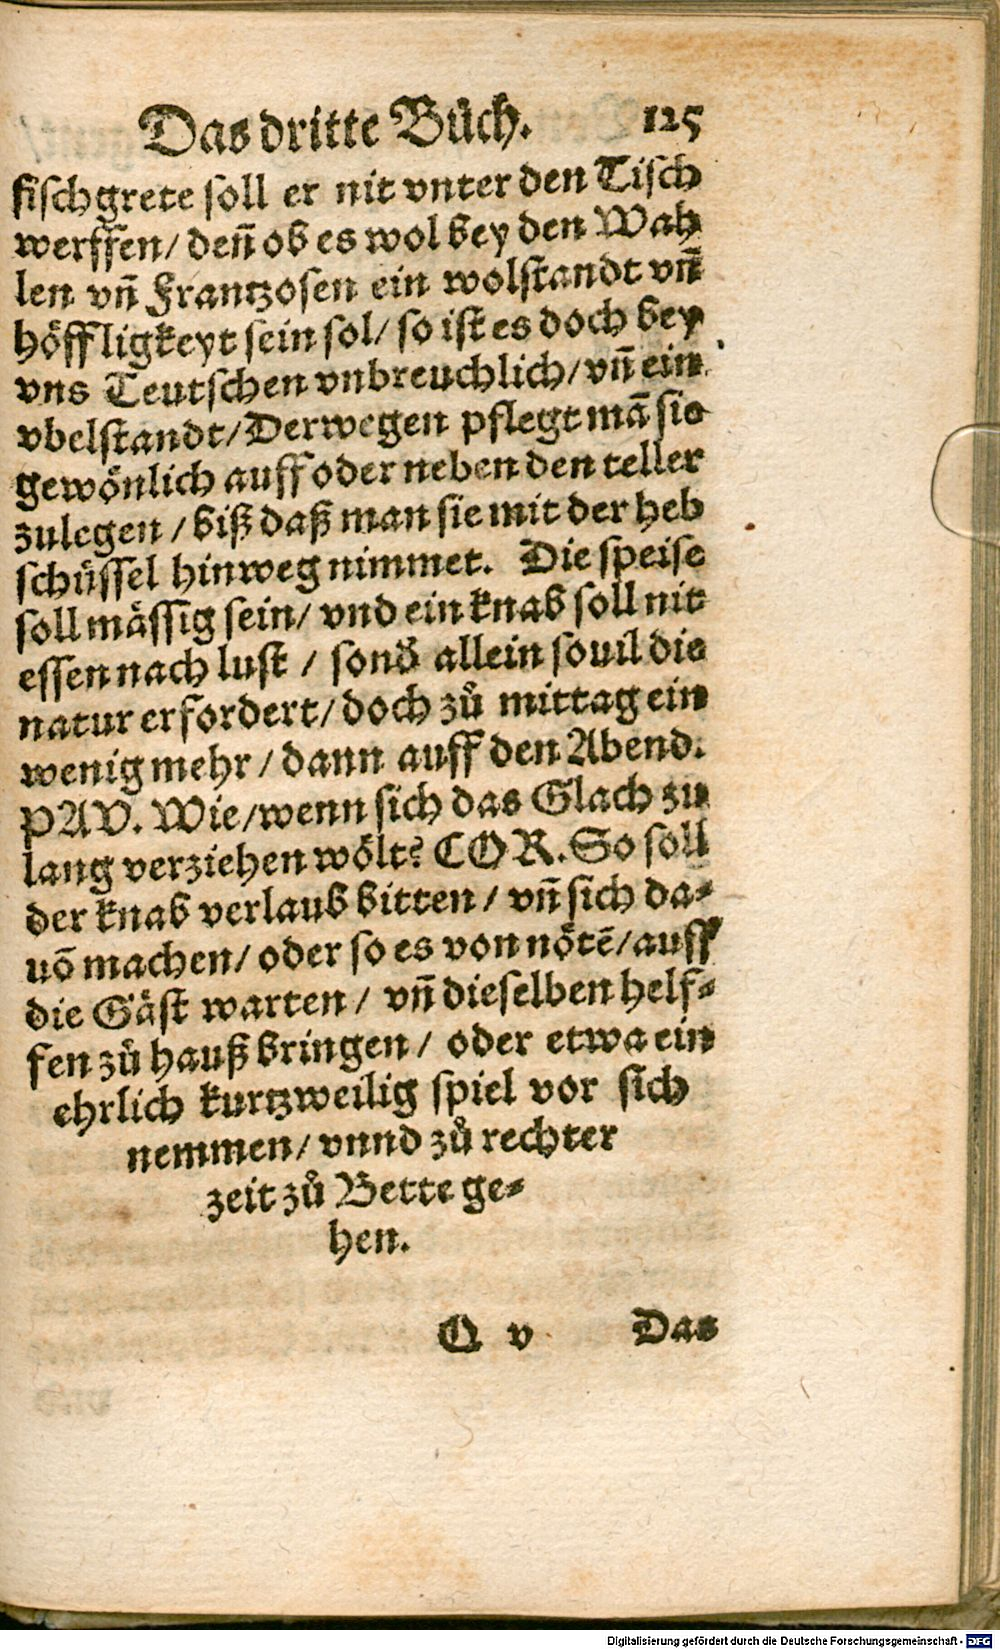 Das dritte Bůch. 125
fischgrete soll er nit vnter den Tisch
werffen/ deñ ob es wol bey den Wah
len vñ Frantzosen ein wolstandt vñ
höffligkeyt sein sol/ so ist es doch bey
vns Teutschen vnbreuchlich/ vñ ein
vbelstandt/ Derwegen pflegt mã sie
gewönlich auff oder neben den teller
zulegen / biß daß man sie mit der heb
schüssel hinweg nimmet. Die speise
soll mässig sein/ vnd ein knab soll nit
essen nach lust / sond̃ allein souil die
natur erfordert/ doch zů mittag ein
wenig mehr / dann auff den Abend.
PAV. Wie/ wenn sich das Glach zu
lang verziehen wölt? COR. So soll
der knab verlaub bitten / vñ sich da⸗
uõ machen/ oder so es von nötẽ/ auff
die Gäst warten / vñ dieselben helf⸗
fen zů hauß bringen / oder etwa ein
ehrlich kurtzweilig spiel vor sich
nemmen/ vnnd zů rechter
zeit zů Bette ge⸗
hen.
Q v Das
Digitalisierung gefördert durch die Deutsche Forschungsgemeinschaft - DFG